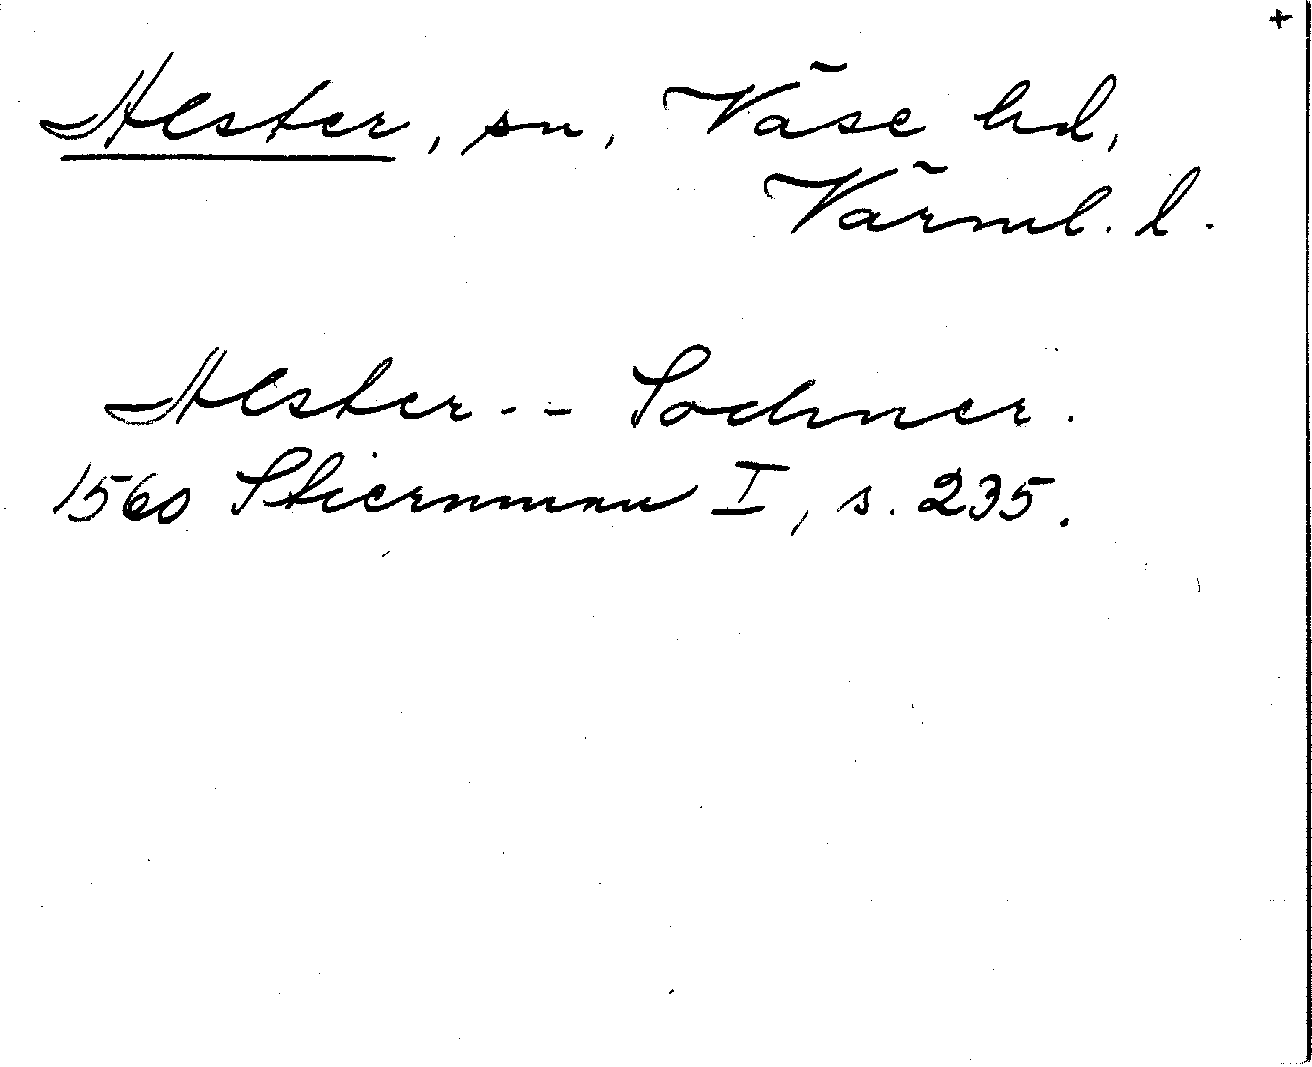 +
Alster, sn, Väse hd,
Värml. l.
Alster -- Sochner.
1560 Stiernman I, s. 235.